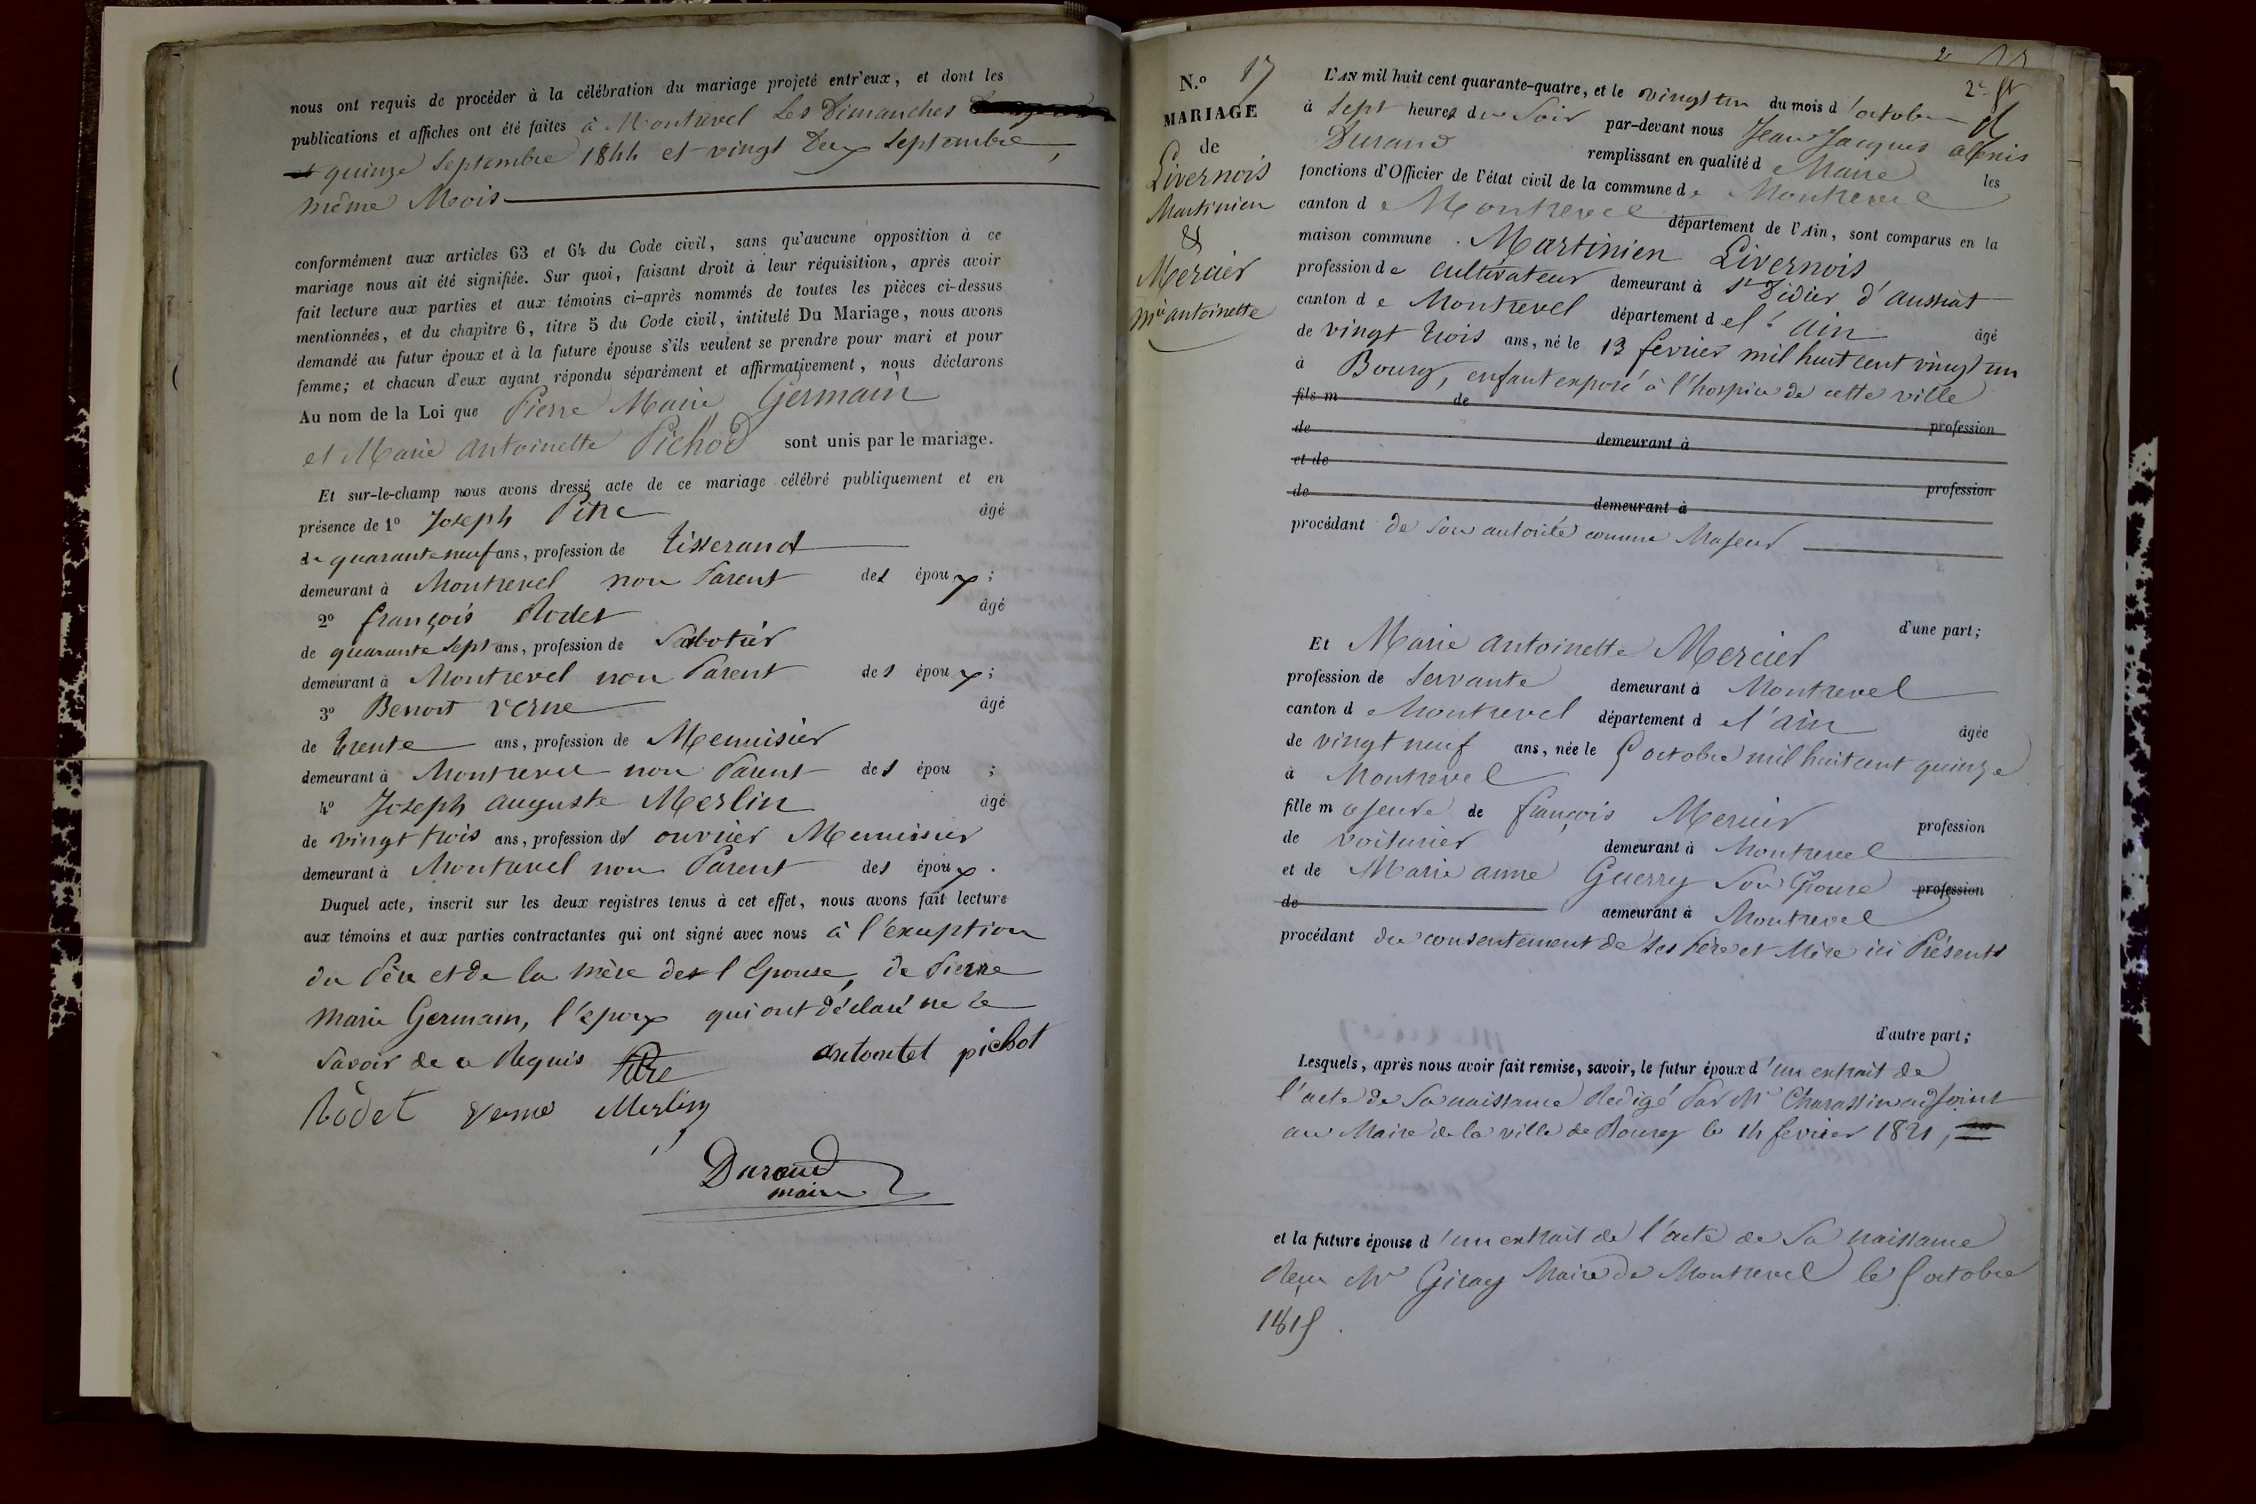 nous ont requis de procéder à la célébration du mariage projeté entr'eux, et dont les
publications et affiches ont été faites à Montrevel Les Dimanches
quinze Septembre 1844 et vingt Deux Septembre,
même Mois
conformément aux articles 63 et 64 du Code civil, sans qu'aucune opposition à ce
mariage nous ait été signifiée. Sur quoi, faisant droit à leur réquisition, après avoir
fait lecture aux parties et aux témoins ci-après nommés de toutes les pièces ci-dessus
mentionnées, et du chapitre 6, titre 5 du Code civil, intitulé Du Mariage, nous avons
demandé au futur époux et à la future épouse s'ils veulent se prendre pour mari et pour
femme; et chacun d'eux ayant répondu séparément et affirmativement, nous déclarons
Au nom de la Loi que Pierre Marie Germain
et Marie Antoinette Pichod sont unis par le mariage.
Et sur-le-champ nous avons dressé acte de ce mariage célébré publiquement et en
présence de 1º Joseph Pitre âgé
de quarante neuf ans, profession de tisserand
demeurant à Montrevel non Parent des époux;
2º françois Rodet âgé
de quarante sept ans, profession de Sabotier
demeurant à Montrevel non Parent des époux;
3º Benoit verne âgé
de trente ans, profession de Menuisier
demeurant à Montrevel non Parent des épou;
4º Joseph auguste Merlin âgé
de vingt trois ans, profession d ouvrier Menuisier
demeurant à Montrevel non Parent des époux.
Duquel acte, inscrit sur les deux registres tenus à cet effet, nous avons fait lecture
aux témoins et aux parties contractantes qui ont signé avec nous à l'exception
du Père et de la mère de l Epouse, de Pierre
Marie Germain, l'époux qui ont déclaré ne le
Savoir de ce Requis Pitre antontet pichot
Rodet verne Merlin
Durand
maire
N.º 17
MARIAGE
de
Livernois
Martinien
&
Mercier
Mie antoinette
2e ft
L'AN mil huit cent quarante-quatre, et le vingt un du mois d'octobre
à Sept heures du Soir par-devant nous Jean Jacques alexis
Durand remplissant en qualité de Maire les
fonctions d'Officier de l'état civil de la commune de Montrevel
canton de Montrevel département de l'Ain, sont comparus en la
maison commune. Martinien Livernois
profession de cultivateur demeurant à St Didier d'aussiat
canton de Montrevel département de l'ain âgé
de vingt trois ans, né le 13 fevrier mil huit cent vingt un
à Bourg, enfant exposé à l'hospice de cette ville
fils m de profession
de demeurant à
et de profession
de demeurant à
procédant de Son autorité comme Majeur
d'une part;
Et Marie antoinette Mercier
profession de Servante demeurant à Montrevel
canton de Montrevel département de l'ain âgée
de vingt neuf ans, née le 5 octobre mil huit cent quinze
à Montrevel
fille majeure de françois Mercier profession
de voiturier demeurant à Montrevel
et de Marie anne Guerry Son Epouse profession
de demeurant à Montrevel
procédant du consentement de Ses Père et Mère ici Présents
d'autre part;
Lesquels, après nous avoir fait remise, savoir, le futur époux d'un extrait de
l'acte de Sa naissance Redigé Par Mr Charassin adjoint
au Maire de la ville de Bourg le 14 fevrier 1821,
et la future épouse d'un extrait de l'acte de Sa naissance
Reçu Mr Giray Maire de Montrevel le 5 octobre
1815.